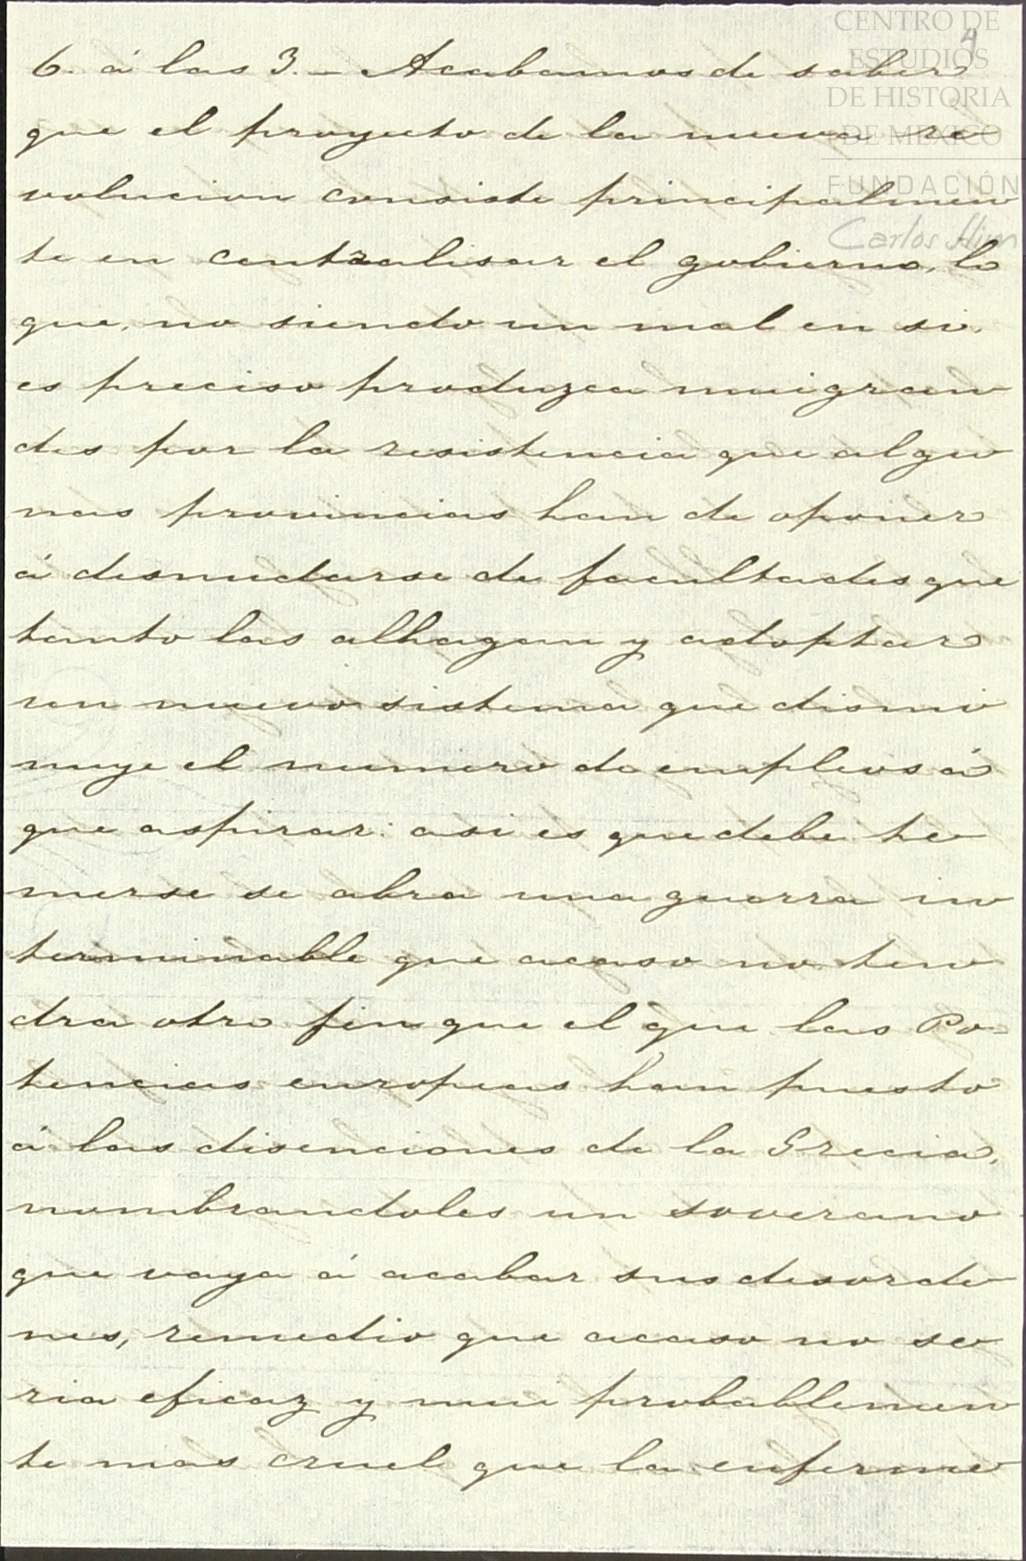 CENTRO DE
ESTUDIOS
DE HISTORIA
DE MEXICO
FUNDACIÓN
Carlos Slim
4
6. á las 3.– Acabamos de saber
que el proyecto de la nueva re
volucion consiste principalmen
te en centralisar el gobierno, lo
que, no siendo un mal en si,
es preciso produzca mui gran
des por la resistencia que algu
nas provincias han de oponer
á desnudarse de facultades que
tanto las alhagan y adoptar
un nuevo sistema que dismi
nuye el numero de empleos á
que aspirar: asi es que debe te
merse se abra una guerra in
terminable que acaso no ten
dra otro fin que el que las Po-
tencias europeas han puesto
á las disenciones de la Grecia,
nombrandoles un soverano
que vaya á acabar sus desorde
nes, remedio que acaso no se
ria eficaz y mui probablemen
te mas cruel que la enferme